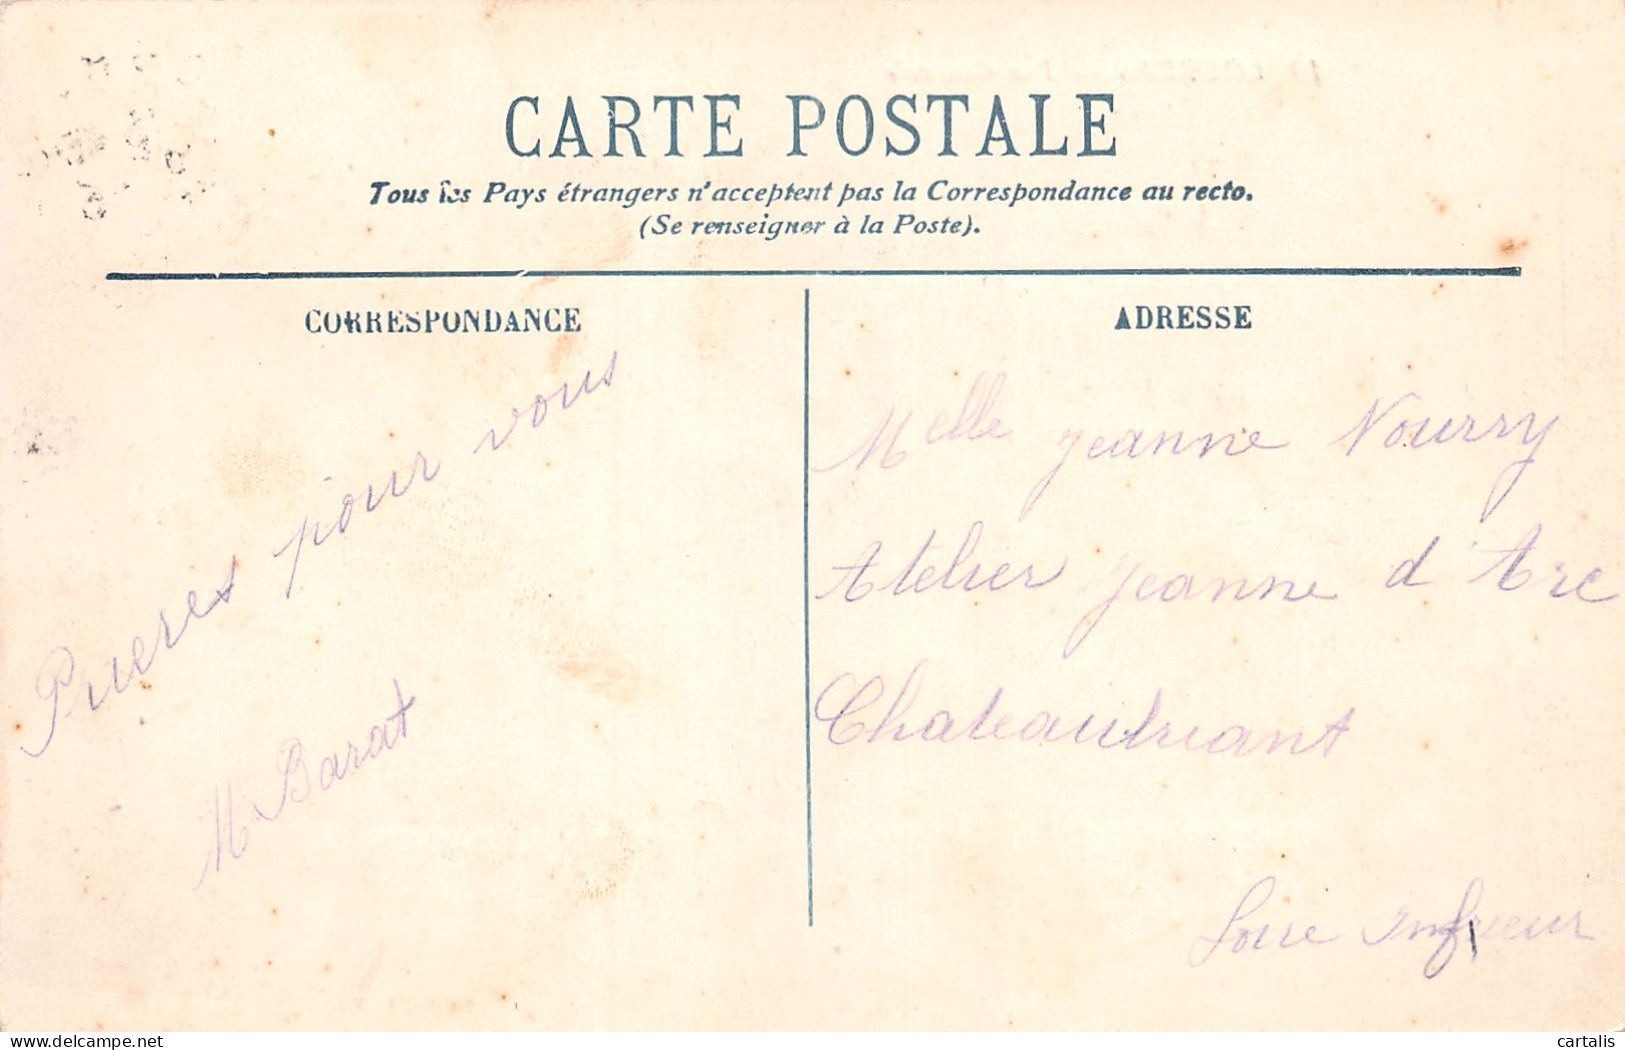 CARTE POSTALE
Tous les Pays étrangers n'acceptent pas la Correspondance au recto.
(Se renseigner à la Poste).
CORRESPONDANCE
Prieres pour vous
M Barat
ADRESSE
Melle Jeanne Nourry
Atelier Jeanne d'Arc
Chateaubriant
Loire Inferieur
cartalis
delcampe.net